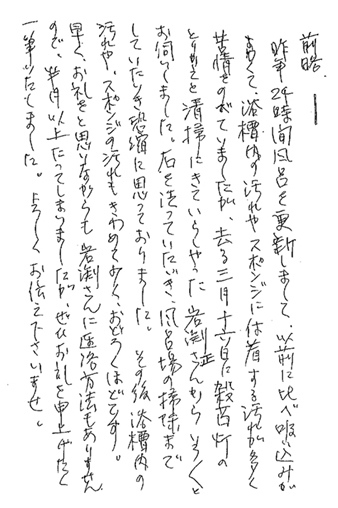 前略
昨年24時間風呂を更新しまして、以前に比べ吸い込みが
よくて、浴槽内の汚れやスポンジに付着する汚れが多く
苦情をのべていましたが、去る三月十六日に殺菌灯の
とりかえと清掃にきていらしゃった岩渕正さんからいろいろと
お伺いしました。石を洗っていただき、風呂場の掃除まで
していただき恐縮に思っておりました。その後浴槽内の
汚れや、スポンジの汚れもきわめて少く、おどろくほどです。
早く、お礼をと思いながらも岩渕さんに連絡方法もありません
ので、半月以上たってしまいましたが、ぜひお礼を申上げたく
一筆いたしました。よろしくお伝え下さいませ。